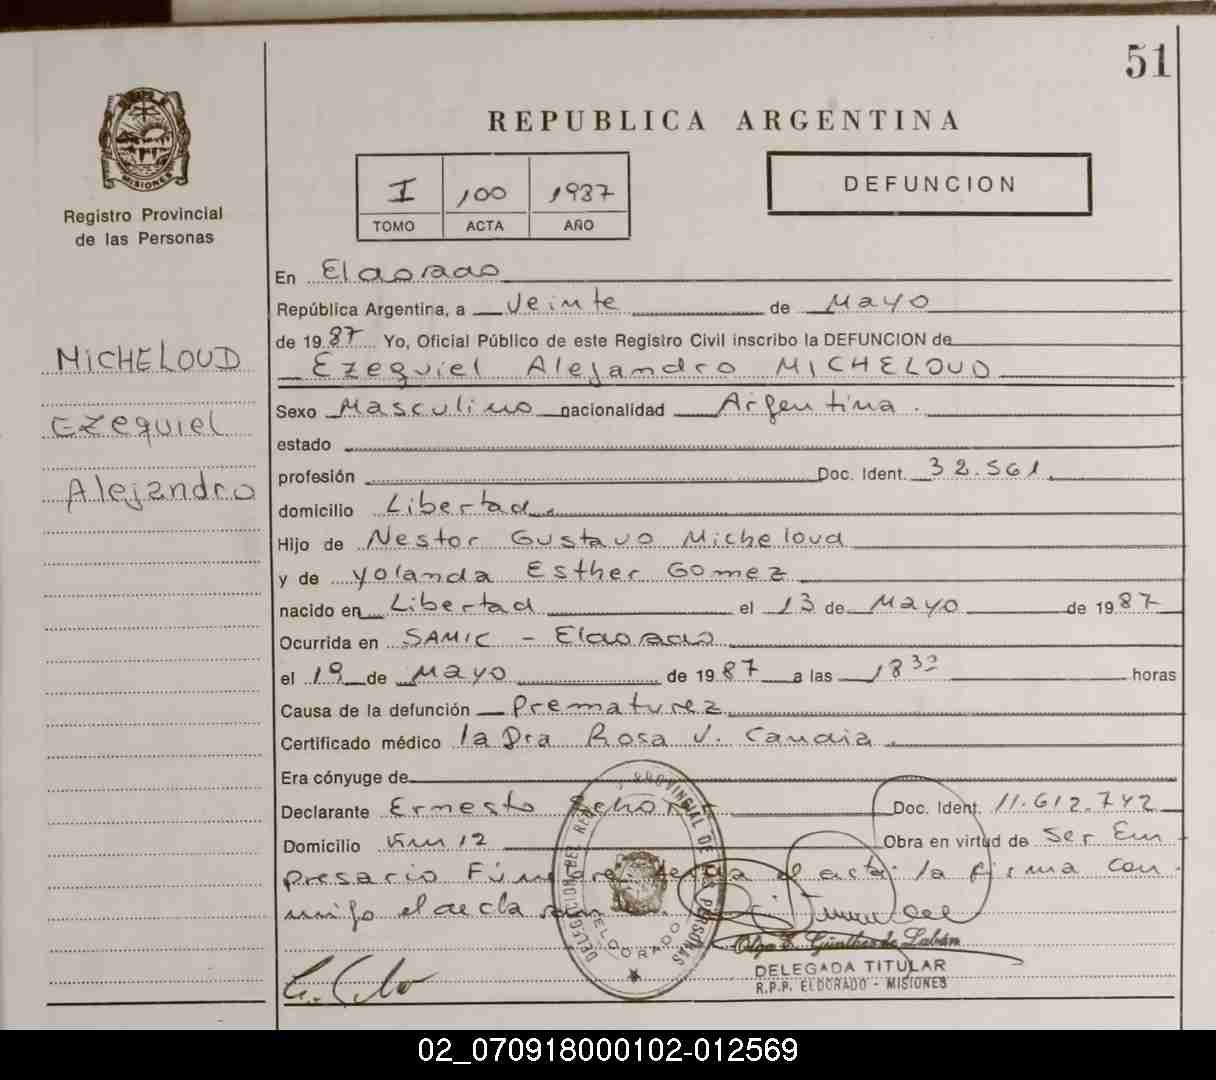 51
REPUBLICA ARGENTINA
MISIONES
Registro Provincial
de las Personas
I 100 1987
TOMO ACTA AÑO
DEFUNCION
MICHELOUD
Ezequiel
Alejandro
En Eldorado
República Argentina, a Veinte de Mayo
de 1987 Yo, Oficial Público de este Registro Civil inscribo la DEFUNCION de
Ezequiel Alejandro MICHELOUD
Sexo Masculino nacionalidad Argentina.
estado
profesión Doc. Ident. 32.561
domicilio Libertad.
Hijo de Nestor Gustavo Micheloud
y de Yolanda Esther Gomez
nacido en Libertad el 13 de Mayo de 1987
Ocurrida en SAMIC - Eldorado
el 19 de Mayo de 1987 a las 18 30 horas
Causa de la defunción Prematurez
Certificado médico la Dra Rosa V. Candia.
Era cónyuge de
Declarante Ernesto Doc. Ident. 11.612.742
Domicilio Km 12 Obra en virtud de Ser Em
presario Fúnebre, leída el acta la firma con
migo el decla
DELEGACION DEL REG. PROVINCIAL DE LAS PERSONAS
ELDORADO
Olga E. Günther de Labán
DELEGADA TITULAR
R.P.P. ELDORADO - MISIONES
02_070918000102-012569